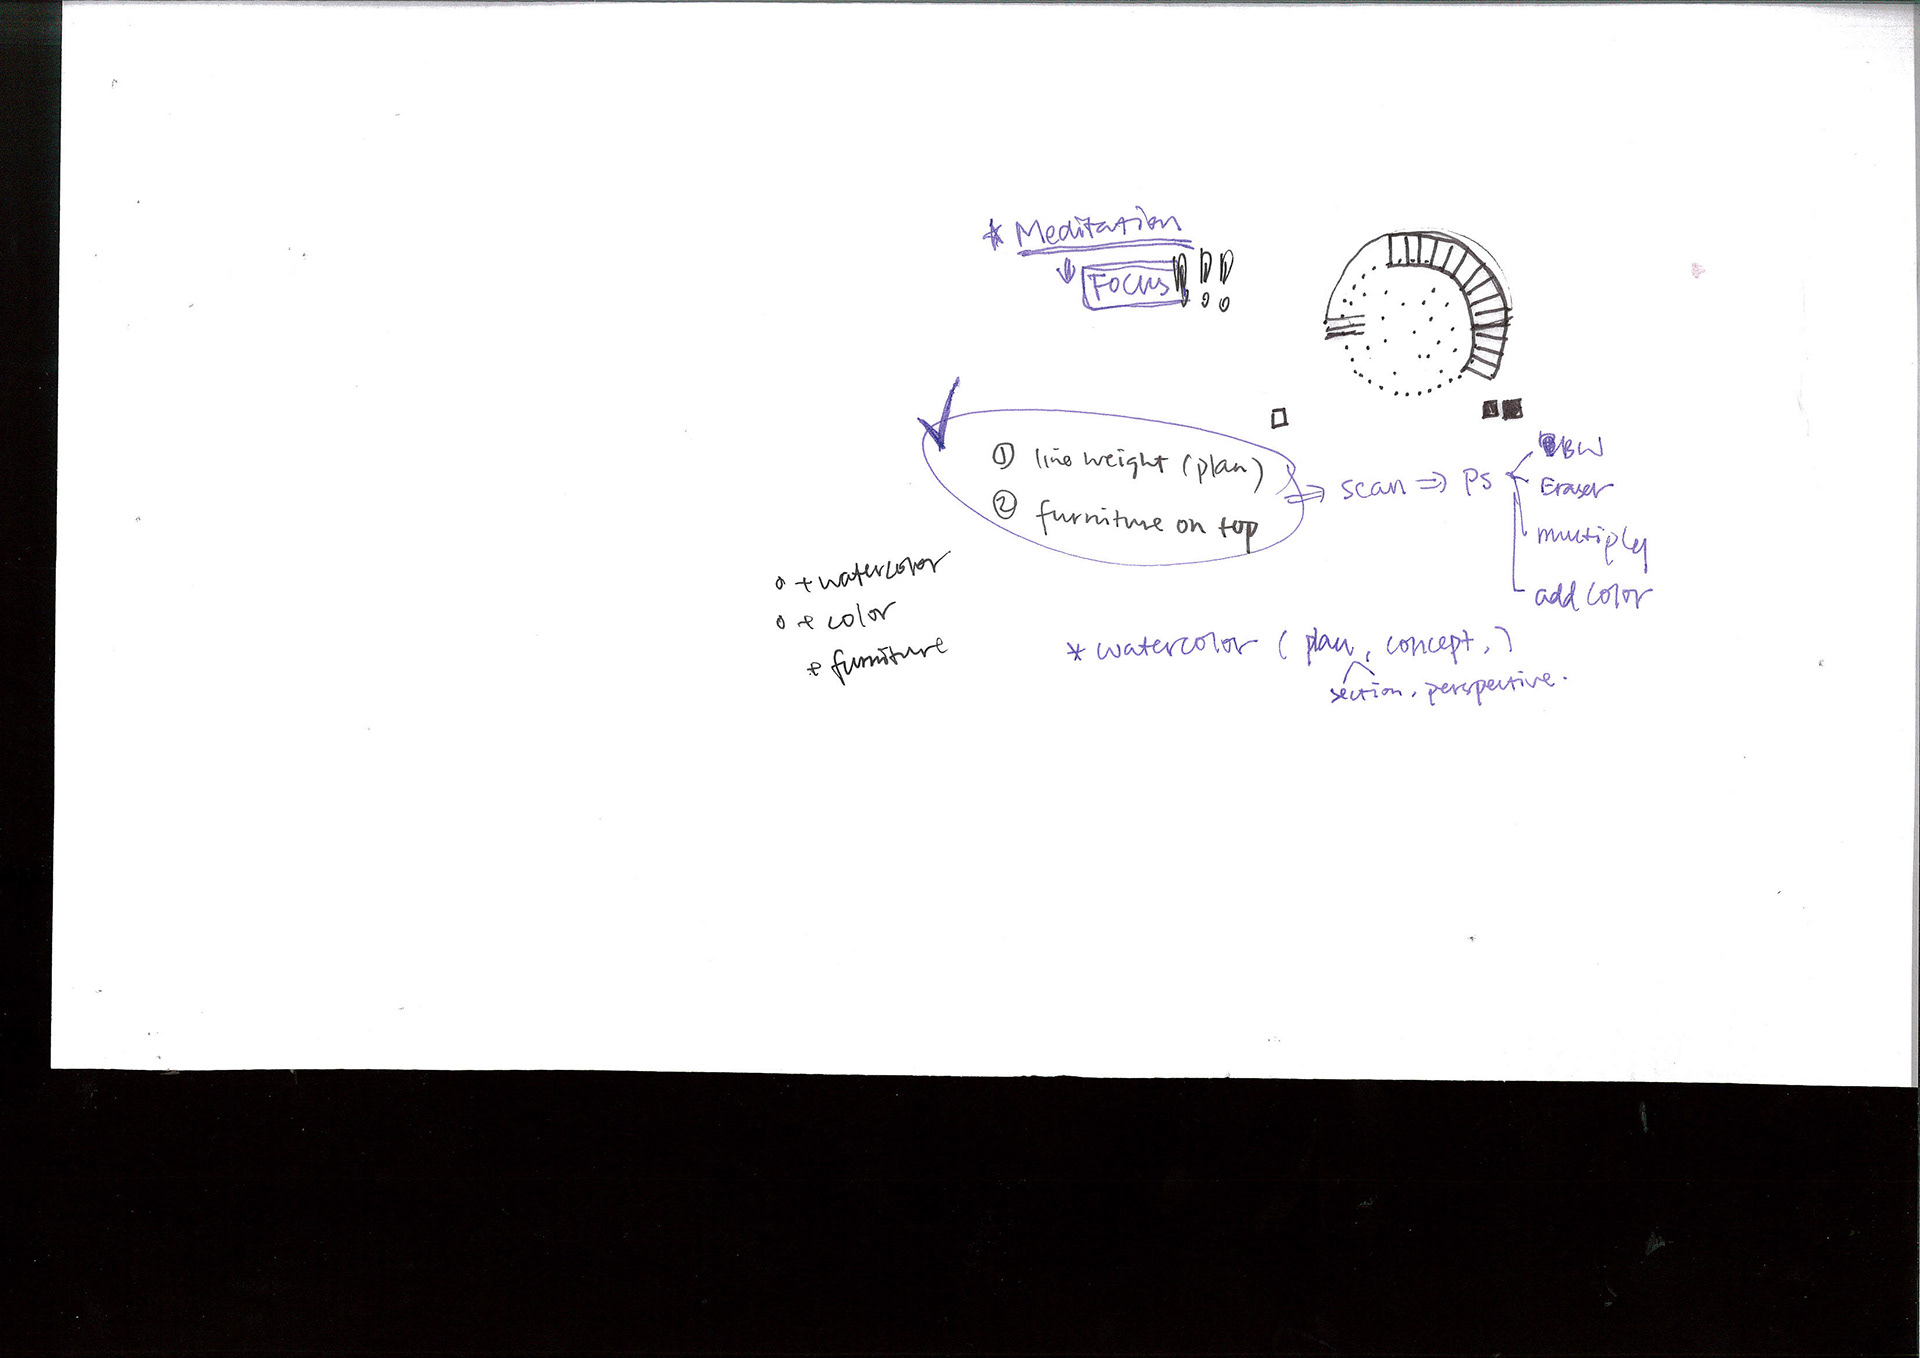 * Meditation
↓ Focus!!!
① line weight (plan)
② furniture on top
⇒ scan ⇒ PS
BW
Eraser
multiply
add color
+ watercolor
+ color
+ furniture
* watercolor (plan, concept, )
section, perspective.